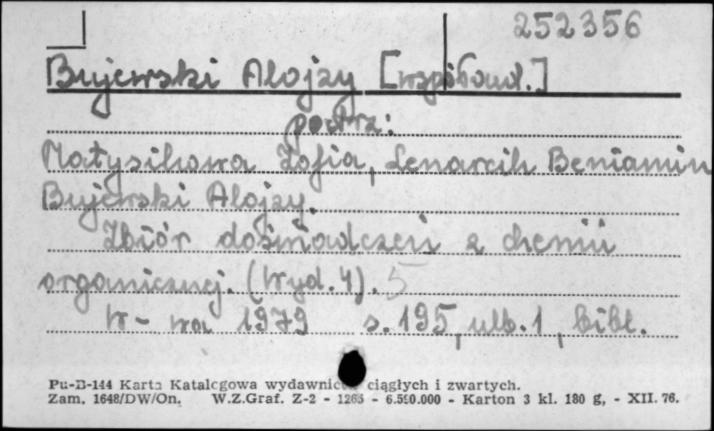 252356
Bujewski Alojzy [współaut.]
patrz:
Matysikowa Zofia, Lenarcik Beniamin
Bujewski Alojzy.
Zbiór doświadczeń z chemii
organicznej. (Wyd. 4). 5
W-wa 1979 s. 195, ulb. 1, bibl.
Pu-B-144 Karta Katalogowa wydawnictw ciągłych i zwartych.
Zam. 1648/DW/On. W.Z.Graf. Z-2 - 1265 - 6.500.000 - Karton 3 kl. 180 g, - XII. 76.